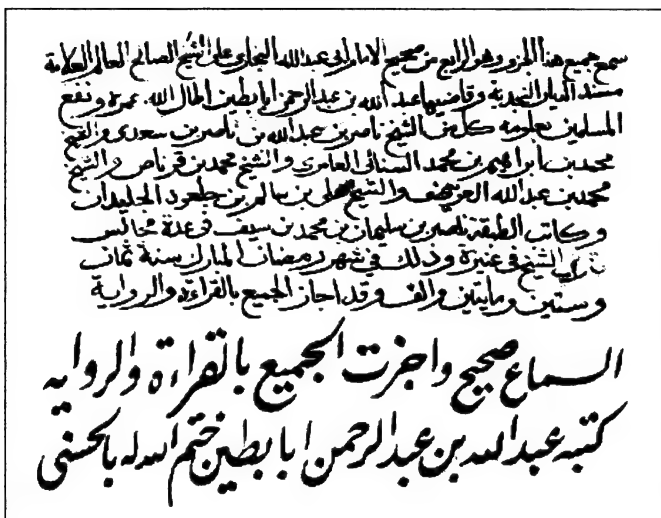 سمع جميع هذا الجزء وهو الرابع من صحيح الامام ابي عبد الله البخاري على الشيخ الصالح العالم العلامة
مسند الديار النجدية وقاضيها عبد الله بن عبد الرحمن ابابطين اطال الله عمره ونفع
المسلمين بعلومه كل من الشيخ ناصر بن عبد الله بن ناصر بن سعدي والشيخ
محمد بن ابراهيم بن محمد السنائي العامري والشيخ محمد بن قرناص والشيخ
محمد بن عبد الله العز والشيخ علي بن سالم بن جلعود الجليدان
وكاتب الطبقة ناصر بن سليمان بن محمد بن سيف في عدة مجالس
الشيخ في عنيزة وذلك في شهر رمضان المبارك سنة ثمان
وستين ومايتين والف وقد اجاز الجميع بالقراءة والرواية
السماع صحيح واجزت الجميع بالقراءة والرواية
كتبه عبد الله بن عبد الرحمن ابابطين ختم الله له بالحسنى